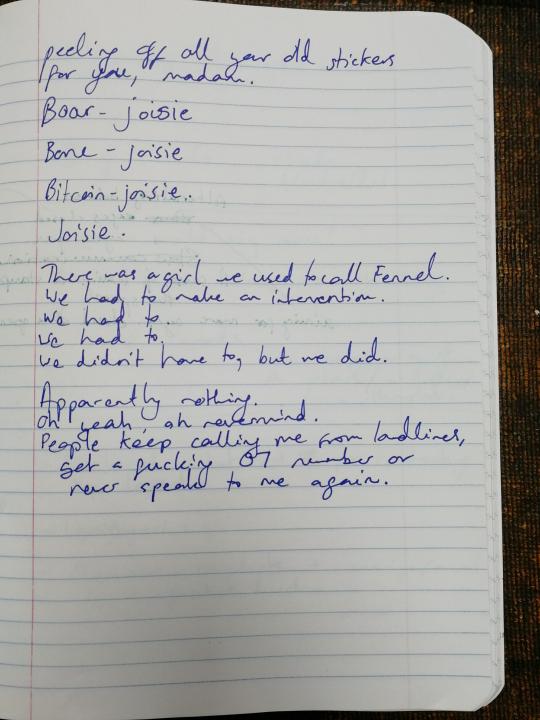 peeling off all your old stickers
for you, madam.
Boar-joisie
Bone-joisie
Bitcoin-joisie.
Joisie.
There was a girl we used to call Fennel.
We had to make an intervention.
We had to
We had to.
We didn't have to, but we did.
Apparently nothing.
Oh yeah, oh nevermind.
People keep calling me from landlines,
get a fucking 07 number or
never speak to me again.